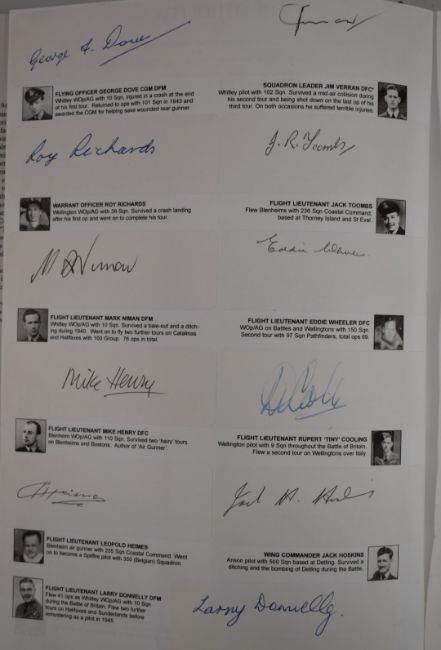 George F. Dove
FLYING OFFICER GEORGE DOVE CGM DFM
Whitley WOp/AG with 10 Sqn, injured in a crash at the end
of his first tour. Returned to ops with 101 Sqn in 1943 and
awarded the CGM for helping save wounded rear gunner.
SQUADRON LEADER JIM VERRAN DFC*
Whitley pilot with 102 Sqn. Survived a mid-air collision during
his second tour and being shot down on the last op of his
third tour. On both occasions he suffered terrible injuries.
Roy Richards
J. R. Toombs
WARRANT OFFICER ROY RICHARDS
Wellington WOp/AG with 38 Sqn. Survived a crash landing
after his first op and went on to complete his tour.
FLIGHT LIEUTENANT JACK TOOMBS
Flew Blenheims with 236 Sqn Coastal Command,
based at Thorney Island and St Eval.
M Niman
Eddie Wheeler
FLIGHT LIEUTENANT MARK NIMAN DFM
Whitley WOp/AG with 10 Sqn. Survived a bale-out and a ditch-
ing during 1940. Went on to fly two further tours on Catalinas
and Halifaxes with 100 Group. 76 ops in total.
FLIGHT LIEUTENANT EDDIE WHEELER DFC
WOp/AG on Battles and Wellingtons with 150 Sqn.
Second tour with 97 Sqn Pathfinders, total ops 69.
Mike Henry
FLIGHT LIEUTENANT MIKE HENRY DFC
Blenheim WOp/AG with 110 Sqn. Survived two 'hairy' tours
on Blenheims and Bostons. Author of 'Air Gunner'.
FLIGHT LIEUTENANT RUPERT 'TINY' COOLING
Wellington pilot with 9 Sqn throughout the Battle of Britain.
Flew a second tour on Wellingtons over Italy
Heimes
Jack H. Hoskins
FLIGHT LIEUTENANT LEOPOLD HEIMES
Blenheim air gunner with 235 Sqn Coastal Command. Went
on to become a Spitfire pilot with 350 (Belgian) Squadron.
WING COMMANDER JACK HOSKINS
Anson pilot with 500 Sqn based at Detling. Survived a
ditching and the bombing of Detling during the Battle.
FLIGHT LIEUTENANT LARRY DONNELLY DFM
Flew 41 ops as Whitley WOp/AG with 10 Sqn
during the Battle of Britain. Flew two further
tours on Halifaxes and Sunderlands before
remustering as a pilot in 1945.
Larry Donnelly.